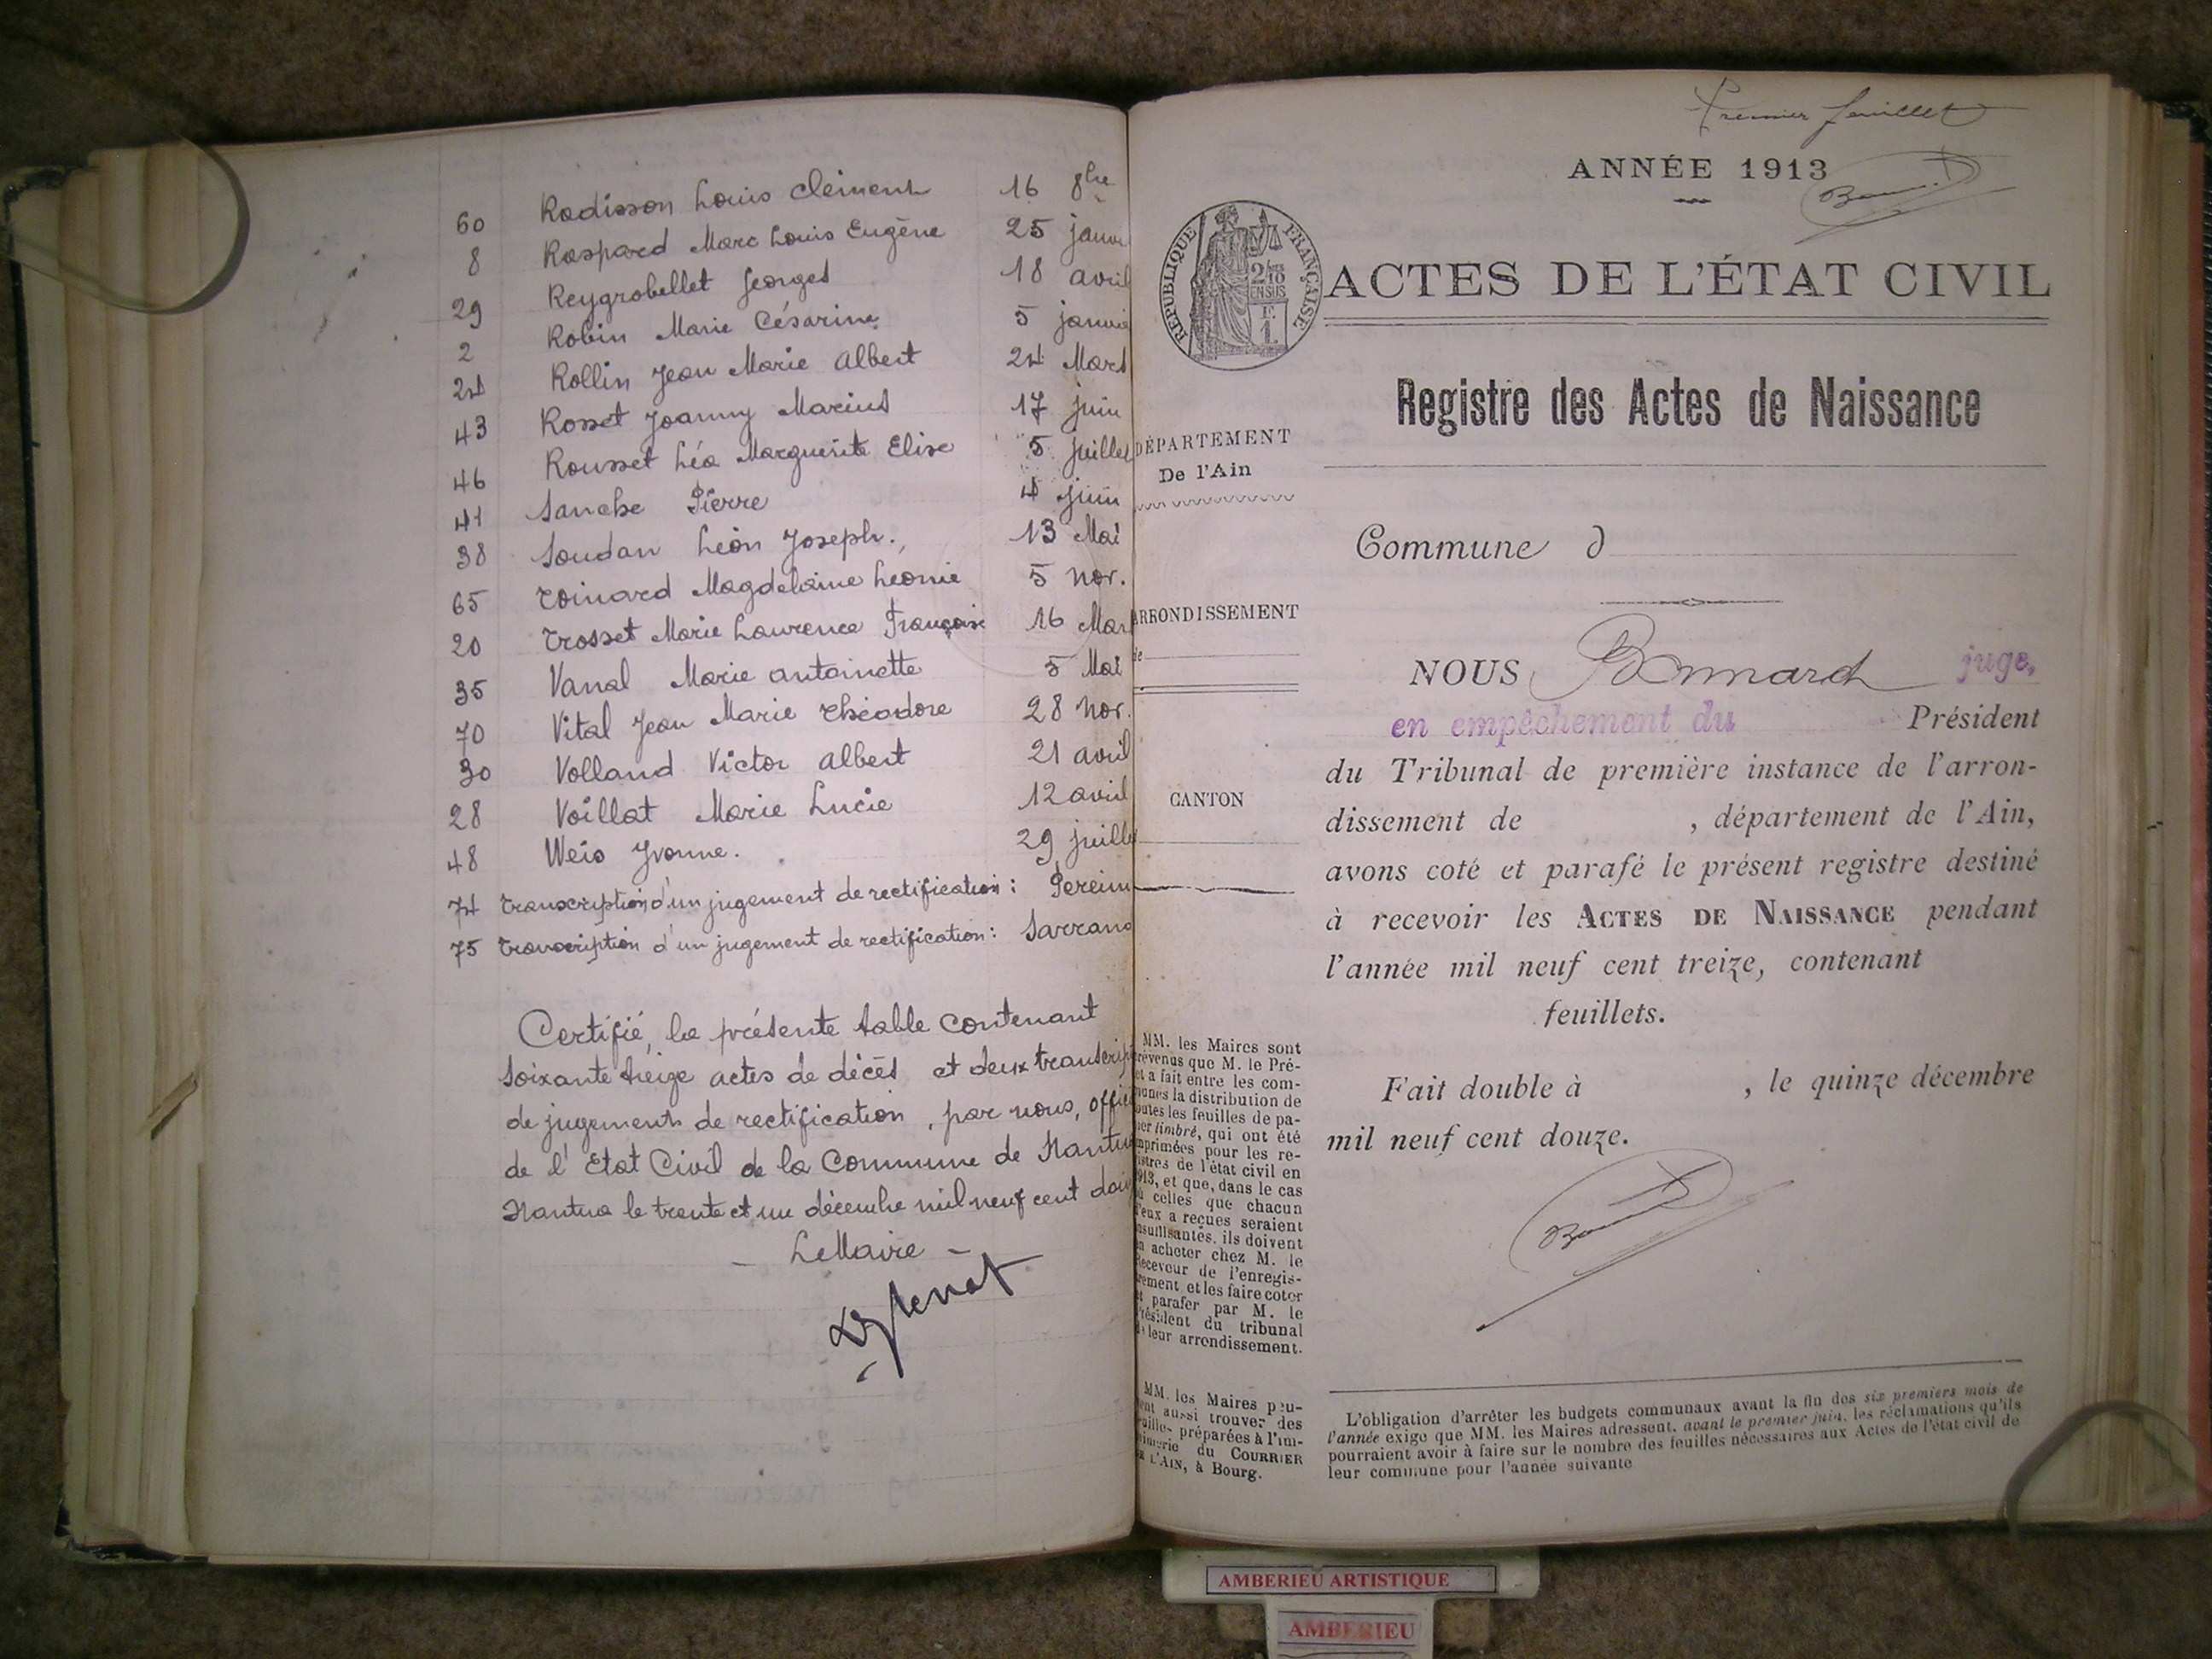 60 Radisson Louis Clément 16 8bre
8 Raspard Marc Louis Eugène 25 janv
29 Reygrobellet Georges 18 avril
2 Robin Marie Césarine 5 janvie
24 Rollin Jean Marie Albert 24 Mars
43 Rosset Joanny Marius 17 juin
46 Rousset Léa Marguerite Elise 5 juillet
41 Sanche Pierre 4 juin
38 Soudan Léon Joseph. 13 Mai
65 Toinard Magdelaine Leonie 5 nov.
20 Trosset Marie Laurence Française 16 Mar
35 Vanal Marie antoinette 5 Mai
70 Vital Jean Marie Théodore 28 nov.
30 Volland Victor albert 21 avril
28 Voillat Marie Lucie 12 avril
48 Weis Yvonne. 29 juille
74 Transcription d'un jugement de rectification :
75 Transcription d'un jugement de rectification : Sarrand
Certifié, la présente table contenant
soixante treize actes de décès et deux transcrip
de jugements de rectification, par nous, offici
de l'Etat Civil de la Commune de Nantua
Nantua le trente et un décembre mil neuf cent
Le Maire
Premier feuillet
ANNÉE 1913
RÉPUBLIQUE FRANÇAISE
ACTES DE L'ÉTAT CIVIL
Registre des Actes de Naissance
DÉPARTEMENT
De l'Ain
Commune d
ARRONDISSEMENT
de
NOUS Bonnard juge,
en empêchement du Président
du Tribunal de première instance de l'arron-
dissement de , département de l'Ain,
CANTON
avons coté et parafé le présent registre destiné
à recevoir les ACTES DE NAISSANCE pendant
l'année mil neuf cent treize, contenant
feuillets.
Fait double à , le quinze décembre
mil neuf cent douze.
MM. les Maires sont
révenus que M. le Pré-
et a fait entre les com-
munes la distribution de
outes les feuilles de pa-
ier timbré, qui ont été
mprimées pour les re-
istres de l'état civil en
913, et que, dans le cas
ù celles que chacun
d'eux a reçues seraient
nsuffisantes, ils doivent
n acheter chez M. le
Receveur de l'enregis-
rement et les faire coter
t parafer par M. le
Président du tribunal
de leur arrondissement.
MM. les Maires peu-
ent aussi trouver des
euilles préparées à l'im-
rimerie du COURRIER
DE L'AIN, à Bourg.
L'obligation d'arrêter les budgets communaux avant la fin des six premiers mois de
l'année exige que MM. les Maires adressent, avant le premier juin, les réclamations qu'ils
pourraient avoir à faire sur le nombre des feuilles nécessaires aux Actes de l'état civil de
leur commune pour l'année suivante
AMBERIEU ARTISTIQUE
AMBERIEU